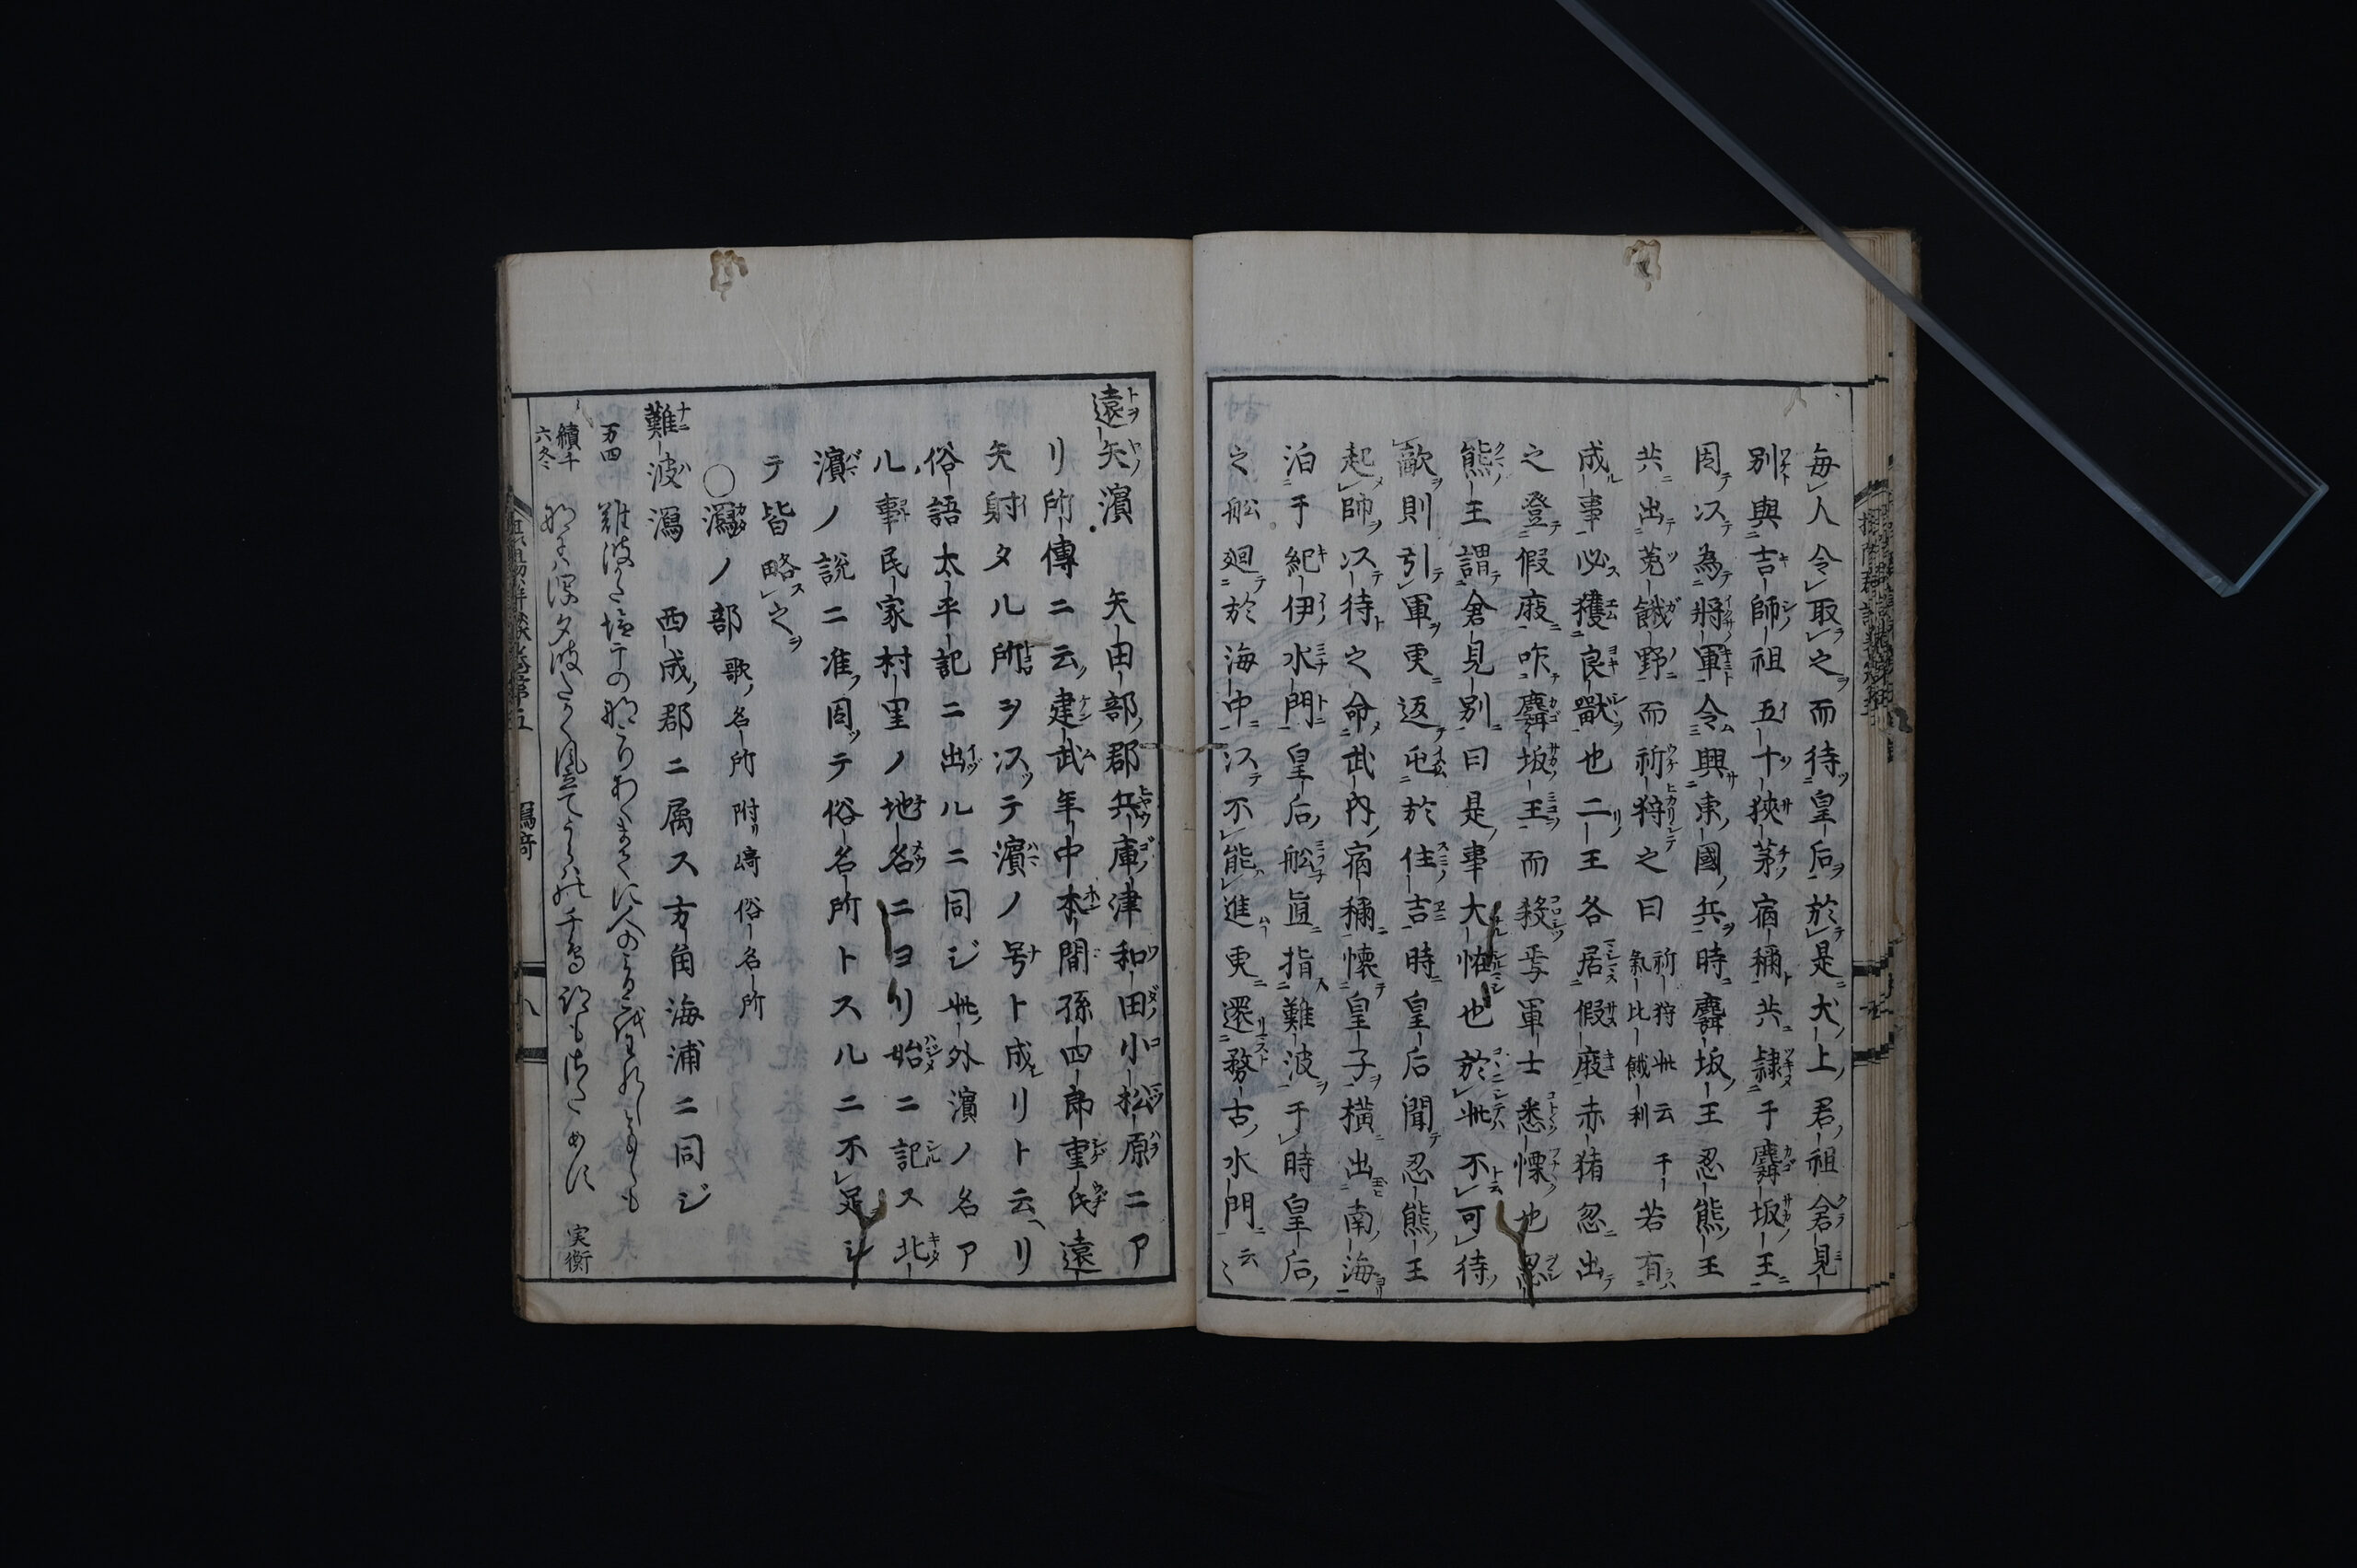 毎人令取之而待皇后於是犬上君祖倉見
別與吉師祖五十狹茅宿禰共隷于麛坂王
因以為將軍令興東國兵時麛坂王忍熊王
共出菟餓野而祈狩之曰祈狩此云于氣比餓利若有
成事必獲良獸也二王各居假庪赤猪忽出
之登假庪咋麛坂王而殺焉軍士悉慄也忍
熊王謂倉見別曰是事大怪也於此不可待
敵則引軍更返屯於住吉時皇后聞忍熊王
起師以待之命武内宿禰懷皇子横出南海
泊于紀伊水門皇后船直指難波于時皇后
之船廻於海中以不能進更還務古水門云〻
遠矢濱　矢田部郡兵庫津和田小松原ニア
リ所傳ニ云建武年中本間孫四郎重氏遠
矢射タル所ヲ以テ濱ノ号ト成リト云ヘリ
俗語太平記ニ出ルニ同ジ此外濱ノ名ア
ル事民家村里ノ地名ニヨリ始ニ記ス北
濱ノ説ニ准ノ因テ俗名所トスルニ不足シ
テ皆略之
○潟ノ部　歌名所　附リ﨑　俗名所
難波潟　西成郡ニ属ス方角海浦ニ同ジ
万四　難波かた塩干の　なこりあくまてに人の
續千六冬　夕波たかく風立てうら　千鳥　実衡